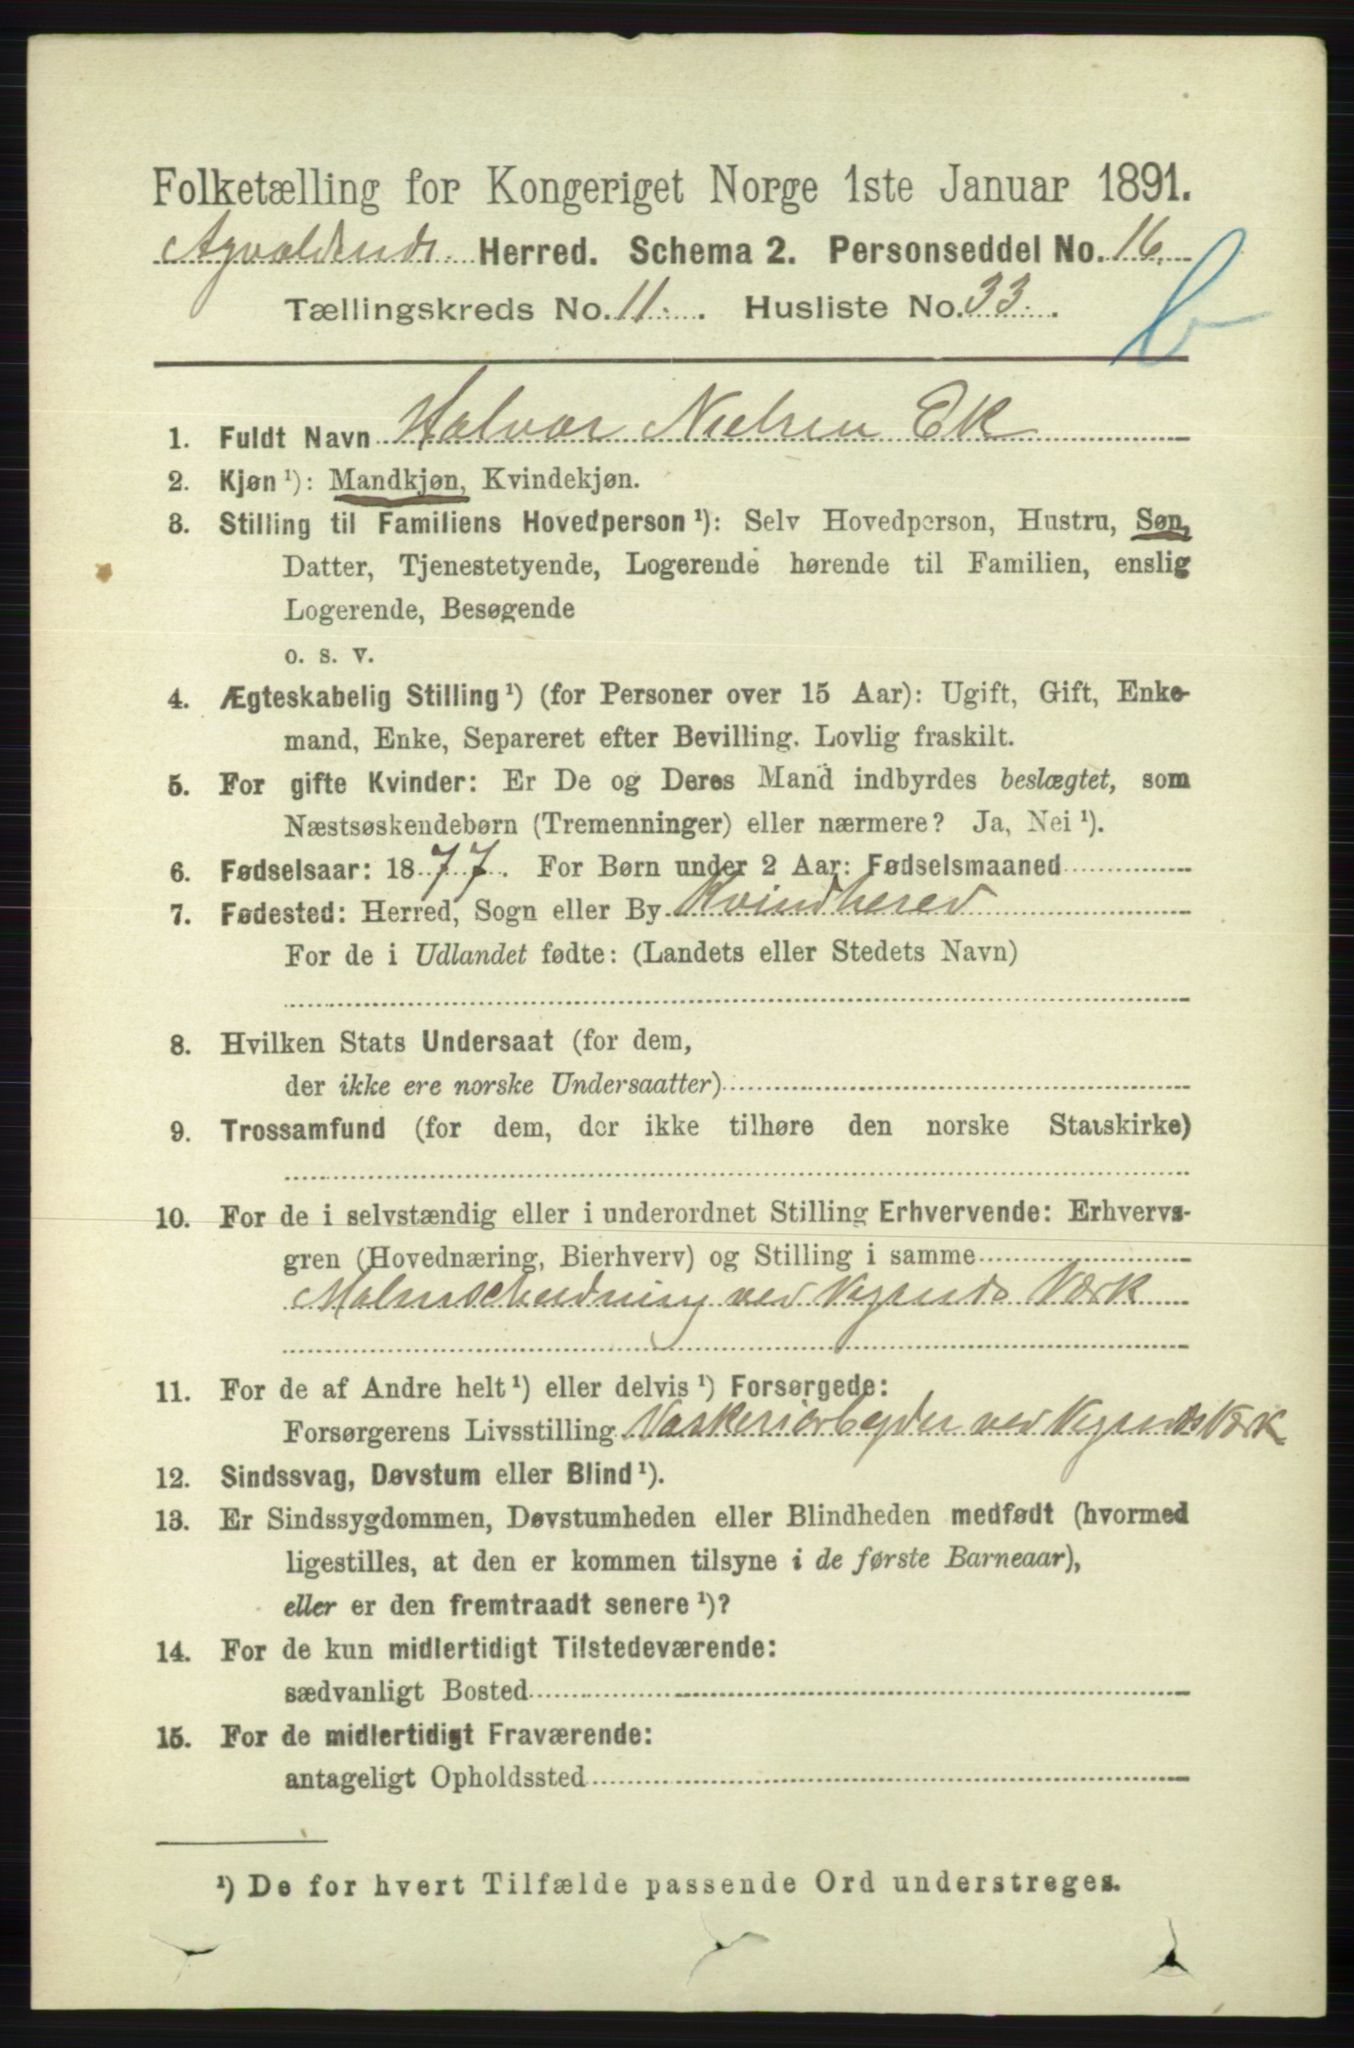 Folketælling for Kongeriget Norge 1ste Januar 1891.
Agvaldsnds Herred. Schema 2. Personseddel No. 16.
Tællingskreds No. 11. Husliste No. 33.
b
1. Fuldt Navn Halvor Nielsen Ek
2. Kjøn ¹): Mandkjøn, Kvindekjøn.
3. Stilling til Familiens Hovedperson ¹): Selv Hovedperson, Hustru, Søn,
Datter, Tjenestetyende, Logerende hørende til Familien, enslig
Logerende, Besøgende
o. s. v.
4. Ægteskabelig Stilling ¹) (for Personer over 15 Aar): Ugift, Gift, Enke-
mand, Enke, Separeret efter Bevilling. Lovlig fraskilt.
5. For gifte Kvinder: Er De og Deres Mand indbyrdes beslægtet, som
Næstsøskendebørn (Tremenninger) eller nærmere? Ja, Nei ¹).
6. Fødselsaar: 1877. For Børn under 2 Aar: Fødselsmaaned
7. Fødested: Herred, Sogn eller By Kvindhered
For de i Udlandet fødte: (Landets eller Stedets Navn)
8. Hvilken Stats Undersaat (for dem,
der ikke ere norske Undersaatter)
9. Trossamfund (for dem, der ikke tilhøre den norske Statskirke)
10. For de i selvstændig eller i underordnet Stilling Erhvervende: Erhvervs-
gren (Hovednæring, Bierhverv) og Stilling i samme
Malmscheidning ved Vigsnds Værk
11. For de af Andre helt ¹) eller delvis ¹) Forsørgede:
Forsørgerens Livsstilling Vaskeriarbeyder ved Vigsnds Værk
12. Sindssvag, Døvstum eller Blind ¹).
13. Er Sindssygdommen, Døvstumheden eller Blindheden medfødt (hvormed
ligestilles, at den er kommen tilsyne i de første Barneaar),
eller er den fremtraadt senere ¹)?
14. For de kun midlertidigt Tilstedeværende:
sædvanligt Bosted
15. For de midlertidigt Fraværende:
antageligt Opholdssted
¹) De for hvert Tilfælde passende Ord understreges.